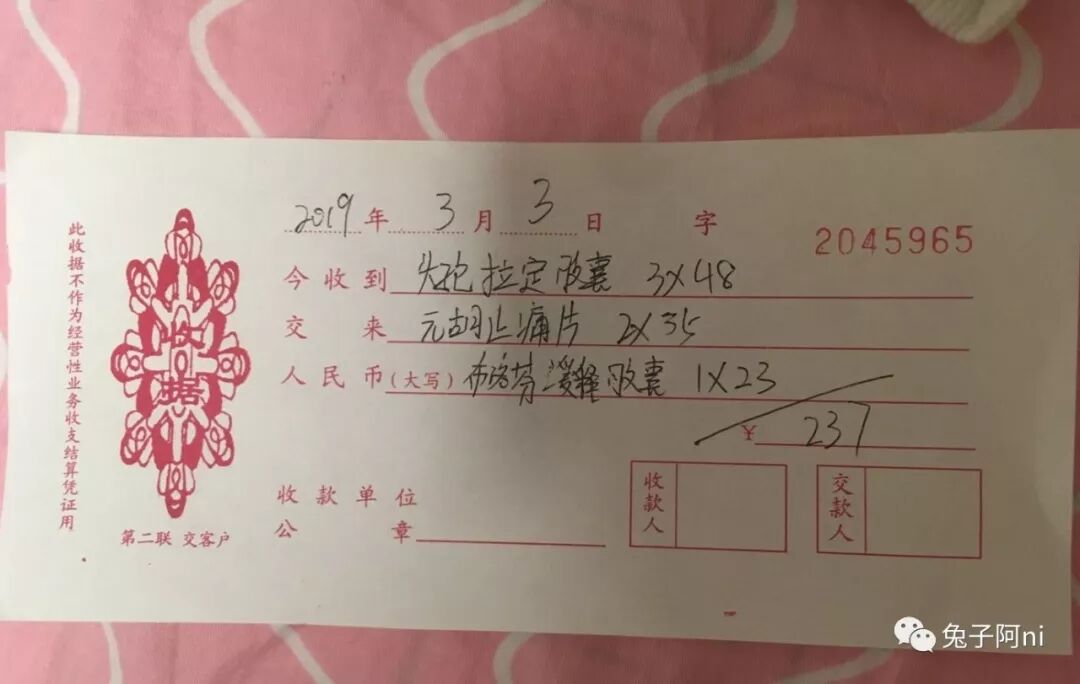 2019年3月3日 字
2045965
今收到 头孢拉定胶囊 3×48
交来 元胡止痛片 2×35
人民币(大写) 布洛芬缓释胶囊 1×23
¥ 237
收款单位
公章
收款人
交款人
收据
第二联 交客户
此收据不作为经营性业务收支结算凭证用
兔子阿ni